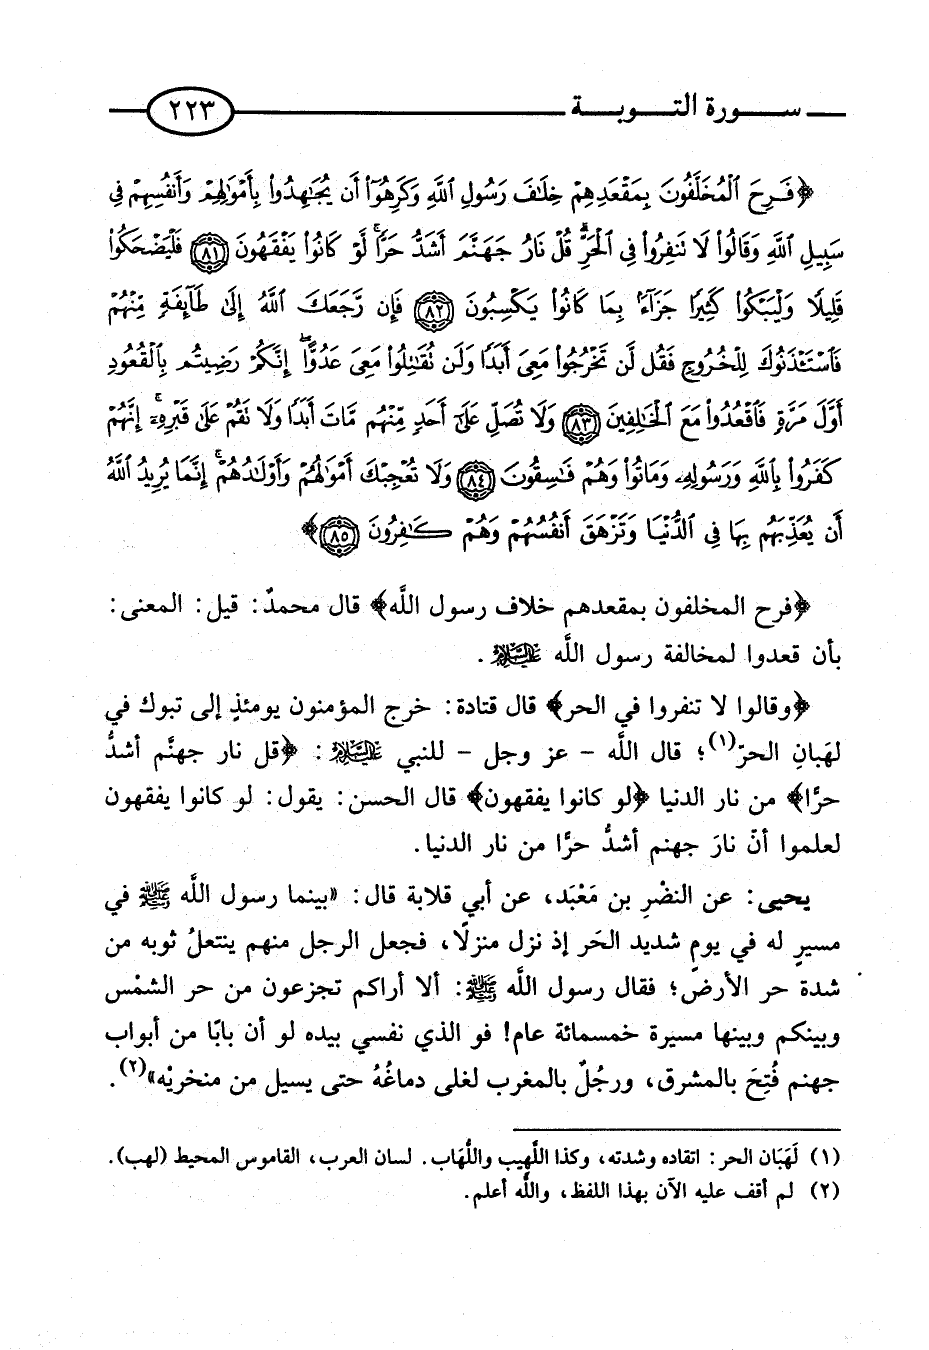 سورة التوبة ٢٢٣
﴿فَرِحَ الْمُخَلَّفُونَ بِمَقْعَدِهِمْ خِلَٰفَ رَسُولِ اللَّهِ وَكَرِهُوٓا۟ أَن يُجَٰهِدُوا۟ بِأَمْوَٰلِهِمْ وَأَنفُسِهِمْ فِى
سَبِيلِ اللَّهِ وَقَالُوا۟ لَا تَنفِرُوا۟ فِى الْحَرِّ ۗ قُلْ نَارُ جَهَنَّمَ أَشَدُّ حَرًّا ۚ لَّوْ كَانُوا۟ يَفْقَهُونَ ﴿٨١﴾ فَلْيَضْحَكُوا۟
قَلِيلًا وَلْيَبْكُوا۟ كَثِيرًا جَزَآءًۢ بِمَا كَانُوا۟ يَكْسِبُونَ ﴿٨٢﴾ فَإِن رَّجَعَكَ اللَّهُ إِلَىٰ طَآئِفَةٍ مِّنْهُمْ
فَاسْتَـْٔذَنُوكَ لِلْخُرُوجِ فَقُل لَّن تَخْرُجُوا۟ مَعِىَ أَبَدًا وَلَن تُقَٰتِلُوا۟ مَعِىَ عَدُوًّا ۖ إِنَّكُمْ رَضِيتُم بِالْقُعُودِ
أَوَّلَ مَرَّةٍ فَاقْعُدُوا۟ مَعَ الْخَٰلِفِينَ ﴿٨٣﴾ وَلَا تُصَلِّ عَلَىٰٓ أَحَدٍ مِّنْهُم مَّاتَ أَبَدًا وَلَا تَقُمْ عَلَىٰ قَبْرِهِۦٓ ۖ إِنَّهُمْ
كَفَرُوا۟ بِاللَّهِ وَرَسُولِهِۦ وَمَاتُوا۟ وَهُمْ فَٰسِقُونَ ﴿٨٤﴾ وَلَا تُعْجِبْكَ أَمْوَٰلُهُمْ وَأَوْلَٰدُهُمْ ۚ إِنَّمَا يُرِيدُ اللَّهُ
أَن يُعَذِّبَهُم بِهَا فِى الدُّنْيَا وَتَزْهَقَ أَنفُسُهُمْ وَهُمْ كَٰفِرُونَ ﴿٨٥﴾﴾
﴿فرح المخلفون بمقعدهم خلاف رسول اللَّه﴾ قال محمدٌ: قيل: المعنى:
بأن قعدوا لمخالفة رسول اللَّه عليه السلام.
﴿وقالوا لا تنفروا في الحر﴾ قال قتادة: خرج المؤمنون يومئذٍ إلى تبوك في
لهَبانِ الحرّ(١)؛ قال اللَّه - عز وجل - للنبي عليه السلام: ﴿قل نار جهنَّم أشدُّ
حرًّا﴾ من نار الدنيا ﴿لو كانوا يفقهون﴾ قال الحسن: يقول: لو كانوا يفقهون
لعلموا أنّ نارَ جهنم أشدُّ حرًّا من نار الدنيا.
يحيى: عن النضْرِ بن مَعْبَد، عن أبي قلابة قال: «بينما رسول اللَّه ﷺ في
مسيرٍ له في يوم شديد الحَر إذ نزل منزلًا، فجعل الرجل منهم ينتعلُ ثوبه من
شدة حر الأرض؛ فقال رسول اللَّه ﷺ: ألا أراكم تجزعون من حر الشمْس
وبينكم وبينها مسيرة خمسمائة عام! فو الذي نفسي بيده لو أن بابًا من أبواب
جهنم فُتِحَ بالمشرق، ورجُلٌ بالمغرب لغلى دماغُهُ حتى يسيل من منخريْه»(٢).
(١) لَهَبَان الحر: اتقاده وشدته، وكذا اللَّهِيب واللُّهَاب. لسان العرب، القاموس المحيط (لهب).
(٢) لم أقف عليه الآن بهذا اللفظ، واللَّه أعلم.